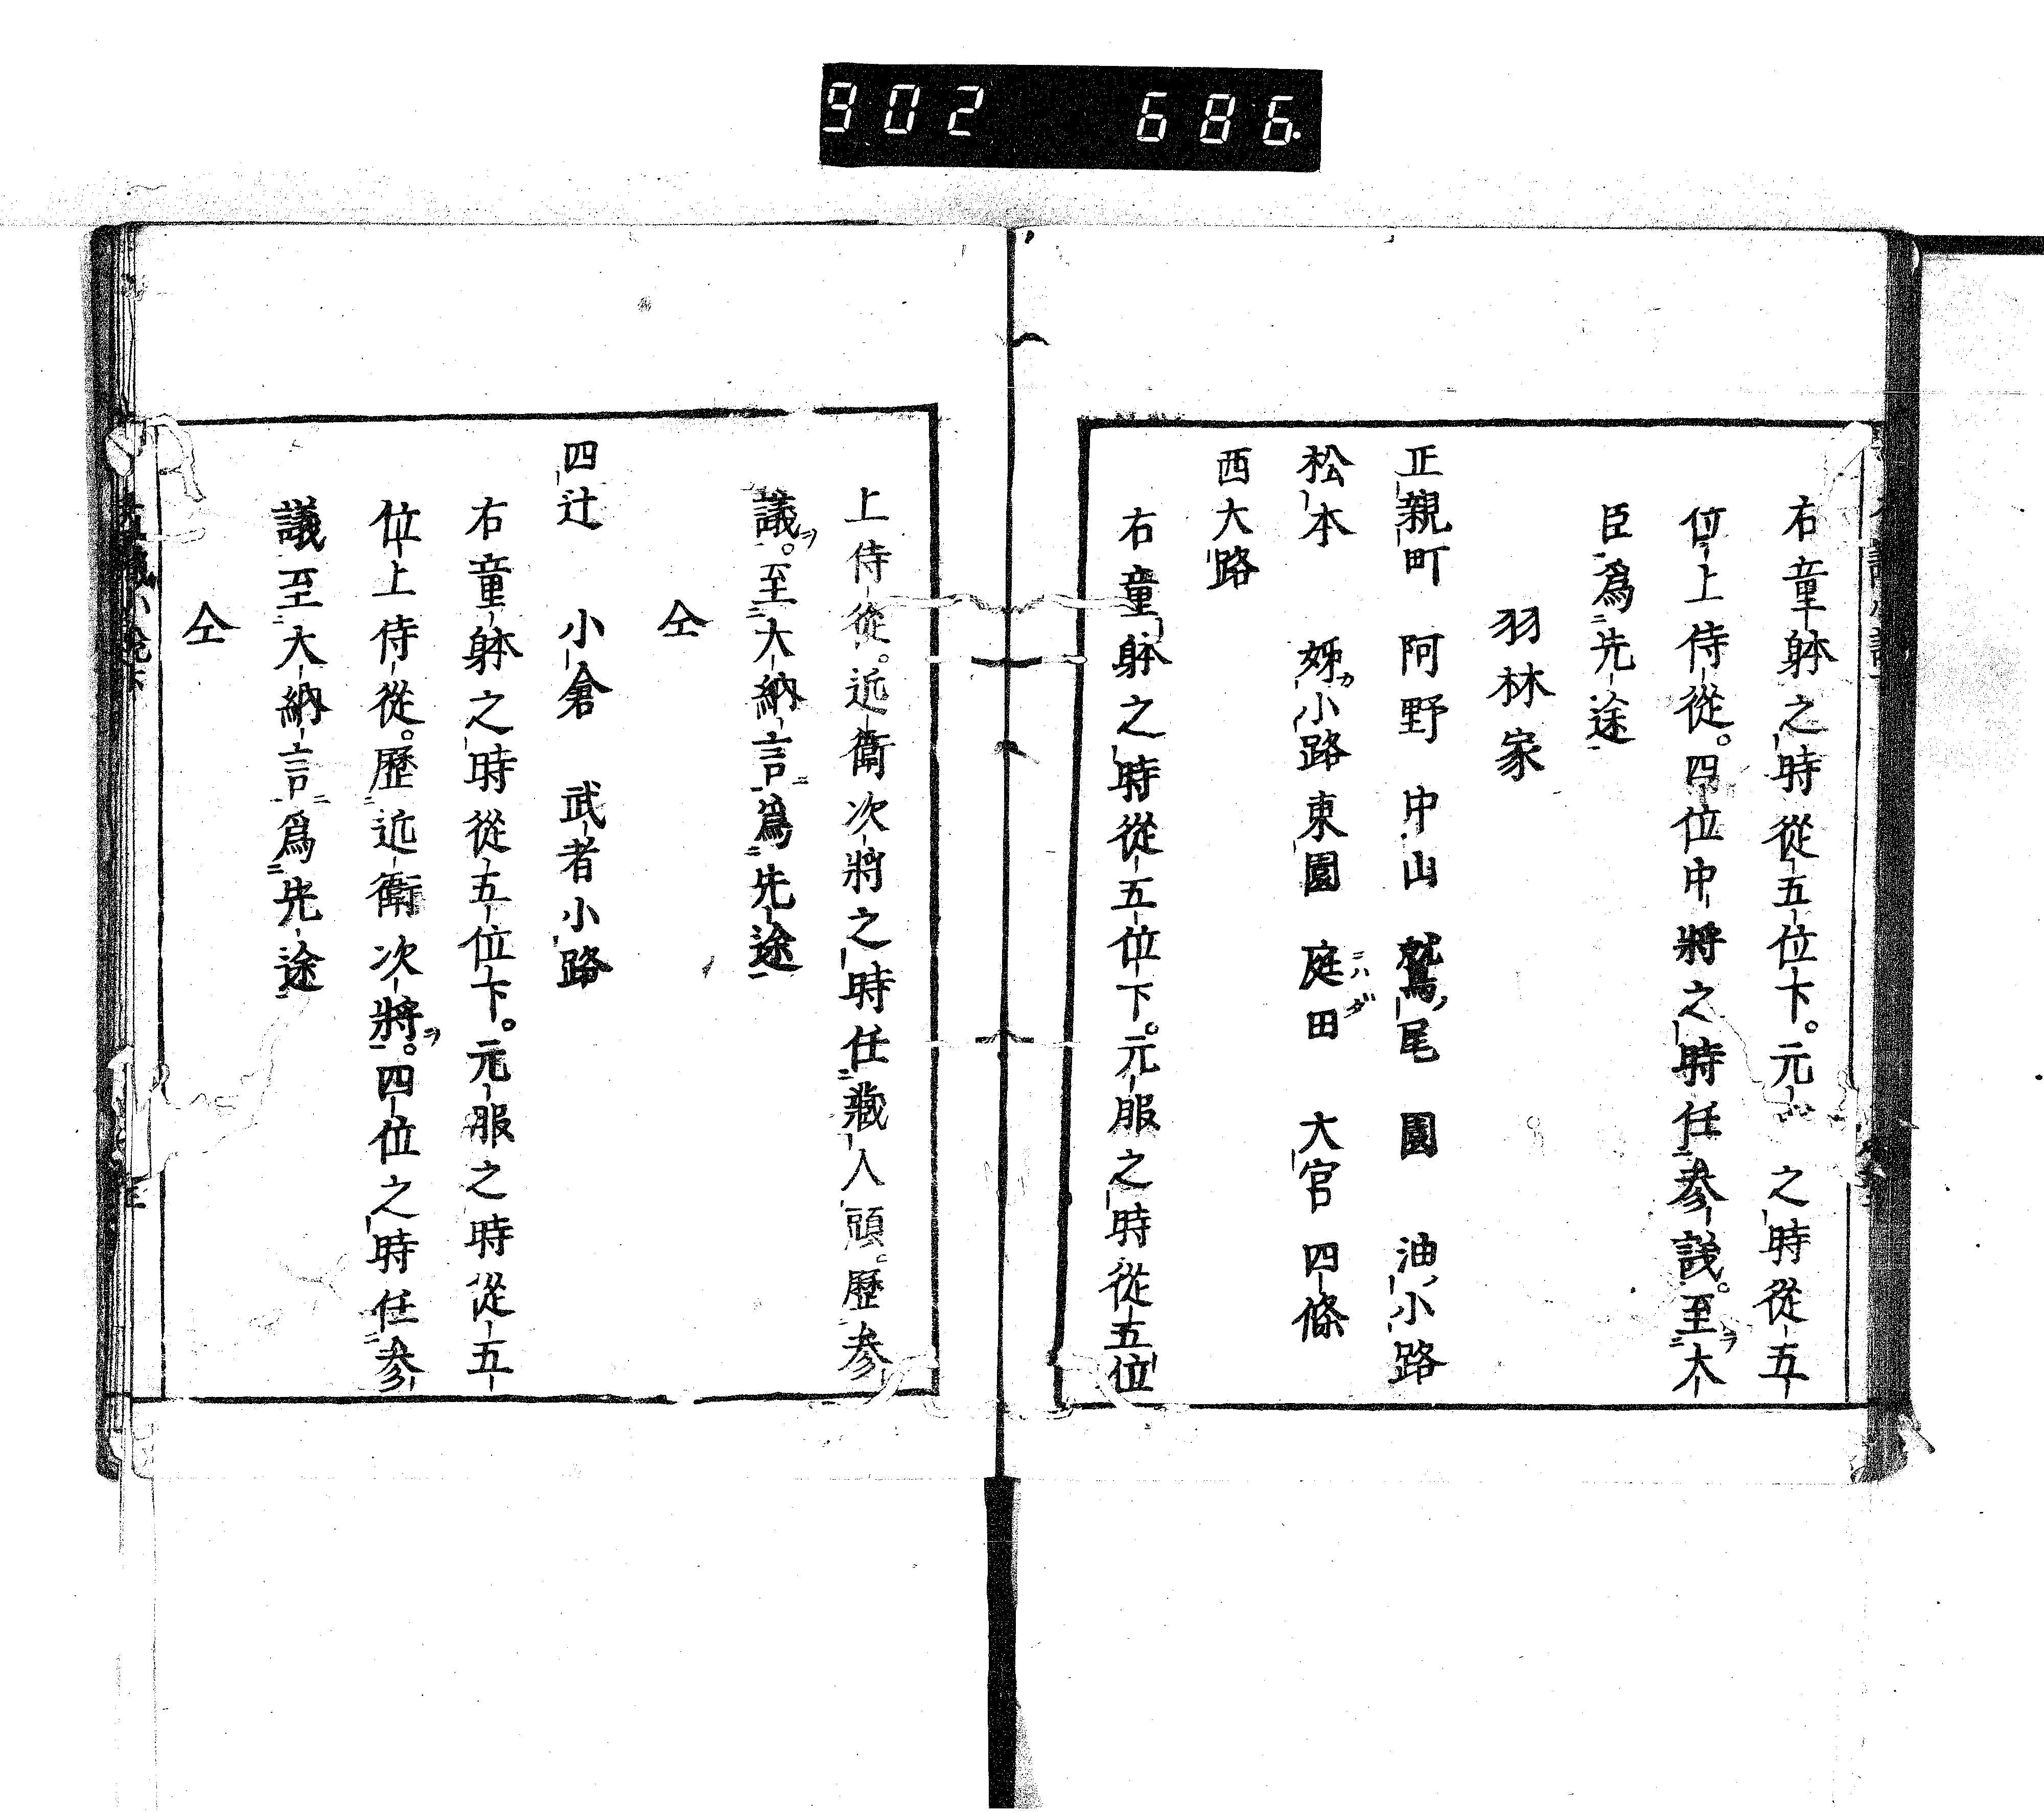 902 686.
右童躰之時從五位下。元 之時從五
位上侍從。四位中將之時任参議。至大
臣爲先途
羽林家
正親町 阿野 中山 鷲ノ尾 園 油ノ小路
松本 姊カ小路 東園 庭田 大宮 四條
西大路
右童躰之時從五位下。元服之時從五位
上侍從。近衞次將之時任藏人頭。歷参
議ヲ。至大納言ニ爲先途
仝
四辻 小倉 武者小路
右童躰之時從五位下。元服之時從五
位上侍從。歷近衞次將ヲ。四位之時任参
議至大納言ニ爲先途
仝